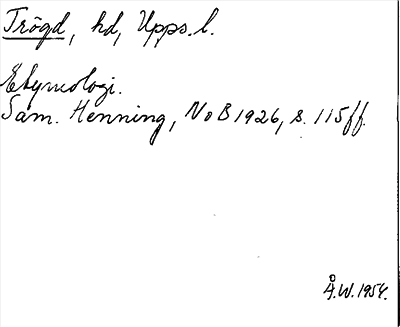 Trögd, hd, Upps. l.
Etymologi.
Sam. Henning, NoB 1926, s. 115 ff.
Å.W. 1954.